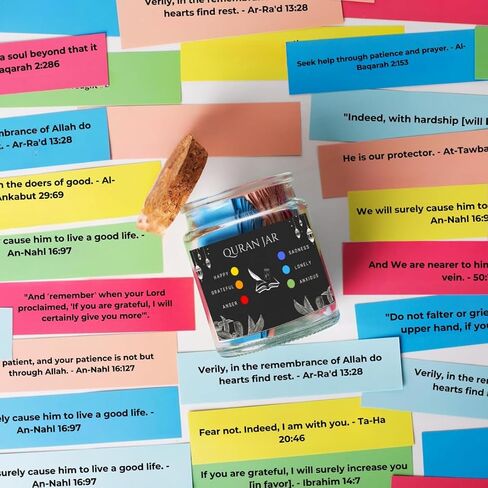 Verily, in the remembrance of Allah do
hearts find rest. - Ar-Ra'd 13:28
a soul beyond that it
aqarah 2:286
Seek help through patience and prayer. - Al-
Baqarah 2:153
mbrance of Allah do
. - Ar-Ra'd 13:28
"Indeed, with hardship [will
He is our protector. - At-Tawba
n the doers of good. - Al-
Ankabut 29:69
We will surely cause him to
- An-Nahl 16:9
y cause him to live a good life. -
An-Nahl 16:97
And We are nearer to him
vein. - 50:
QURAN JAR
HAPPY
SADNESS
GRATEFUL
LONELY
ANGER
ANXIOUS
"And 'remember' when your Lord
proclaimed, 'If you are grateful, I will
certainly give you more'".
"Do not falter or grie
upper hand, if you
patient, and your patience is not but
through Allah. - An-Nahl 16:127
Verily, in the remembrance of Allah do
hearts find rest. - Ar-Ra'd 13:28
Verily, in the rem
hearts find
ely cause him to live a good life. -
An-Nahl 16:97
Fear not. Indeed, I am with you. - Ta-Ha
20:46
surely cause him to live a good life. -
An-Nahl 16:97
If you are grateful, I will surely increase you
[in favor]. - Ibrahim 14:7